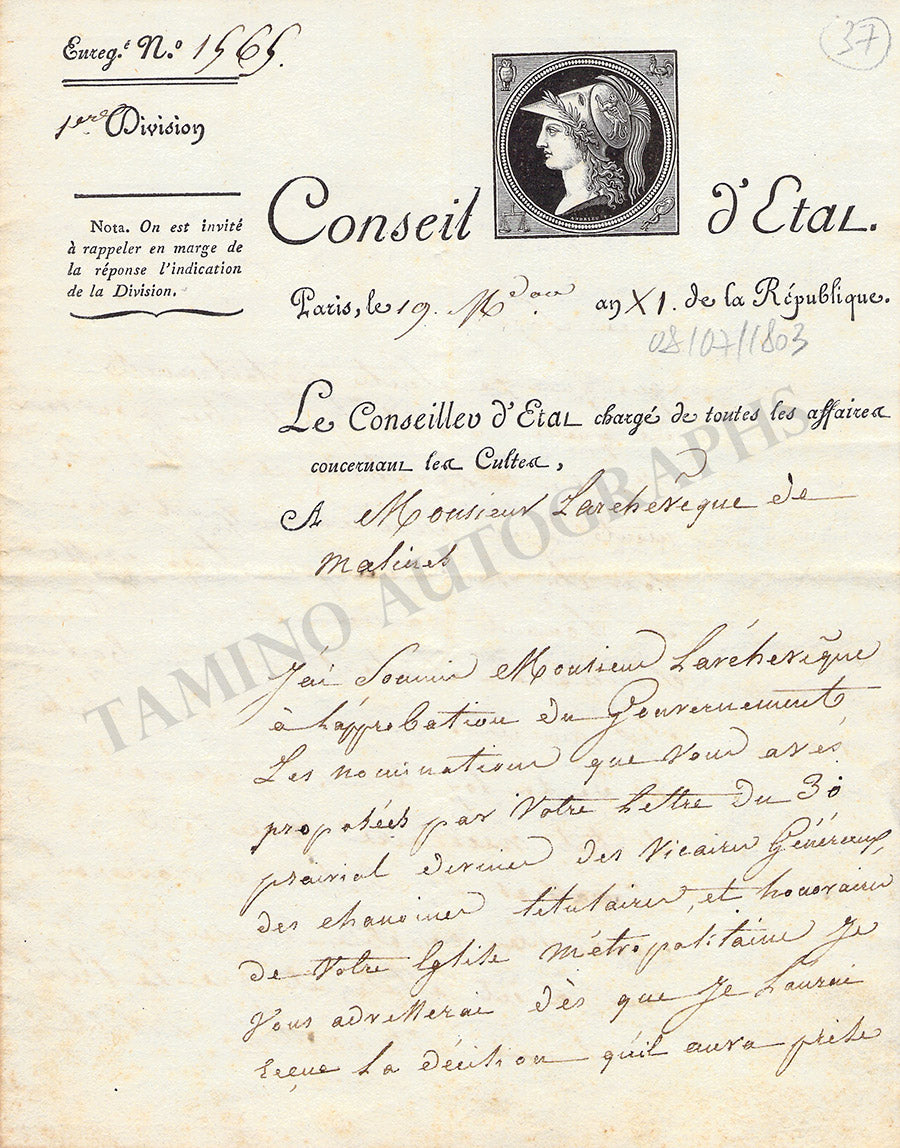 Enreg.é N.o 1565.
37
1ere Division
Nota. On est invité
à rappeler en marge de
la réponse l'indication
de la Division.
Conseil d'Etat.
Paris, le 19. Mdor. an XI. de la République.
08/07/1803
Le Conseiller d'Etat chargé de toutes les affaires
concernant les Cultes,
A Monsieur Larchevêque de
Malines
J'ai Soumis Monsieur Larchevêque
à Lapprobation du Gouvernement
Les nominations que vous avés
proposées par Votre Lettre du 30
prairial dernier des Vicaires Généraux,
des chanoines titulaires, et honoraires
de Votre Eglise Métropolitaine Je
Vous adresserai dès que Je Laurai
reçue La décision qu'il aura prise
TAMINO AUTOGRAPHS